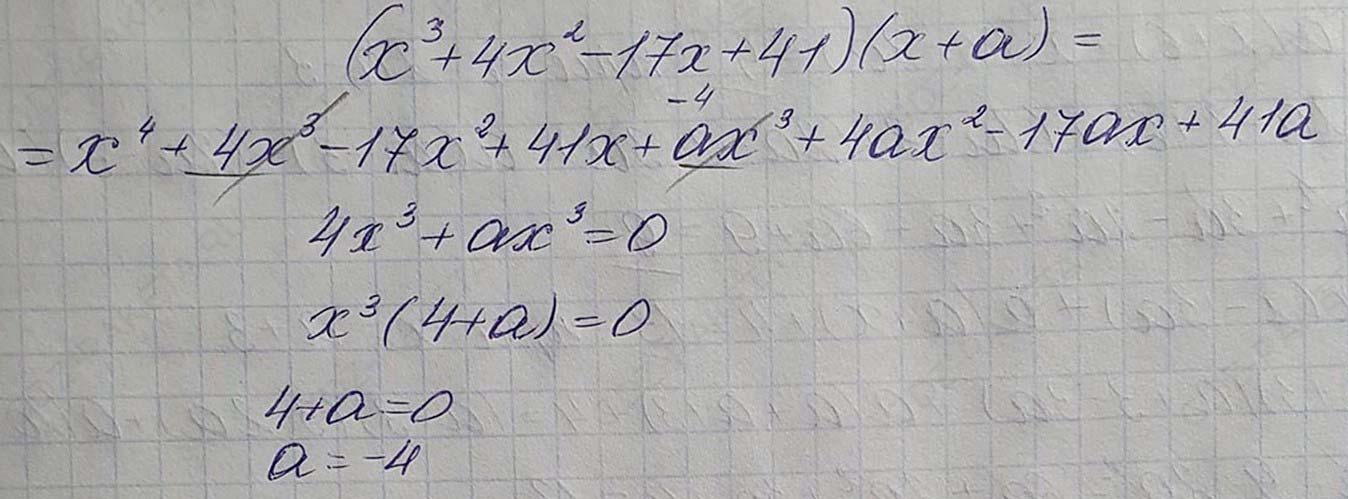 (x³+4x²-17x+41)(x+a)=
-4
=x⁴+4x³-17x²+41x+ax³+4ax²-17ax+41a
4x³+ax³=0
x³(4+a)=0
4+a=0
a=-4